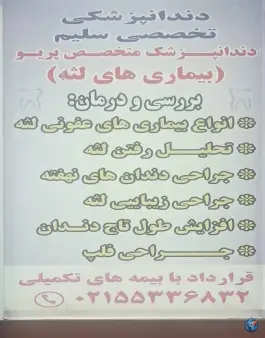 دندانپزشکی
تخصصی سلیم
دندانپزشک متخصص پریو
(بیماری های لثه)
بررسی و درمان:
* انواع بیماری های عفونی لثه
* تحلیل رفتن لثه
* جراحی دندان های نهفته
* جراحی زیبایی لثه
* افزایش طول تاج دندان
* جراحی فلپ
قرارداد با بیمه های تکمیلی
۰۲۱۵۵۳۳۶۸۳۲